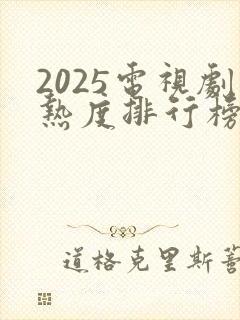 2025電視劇
熱度排行榜
道格克里斯蒂